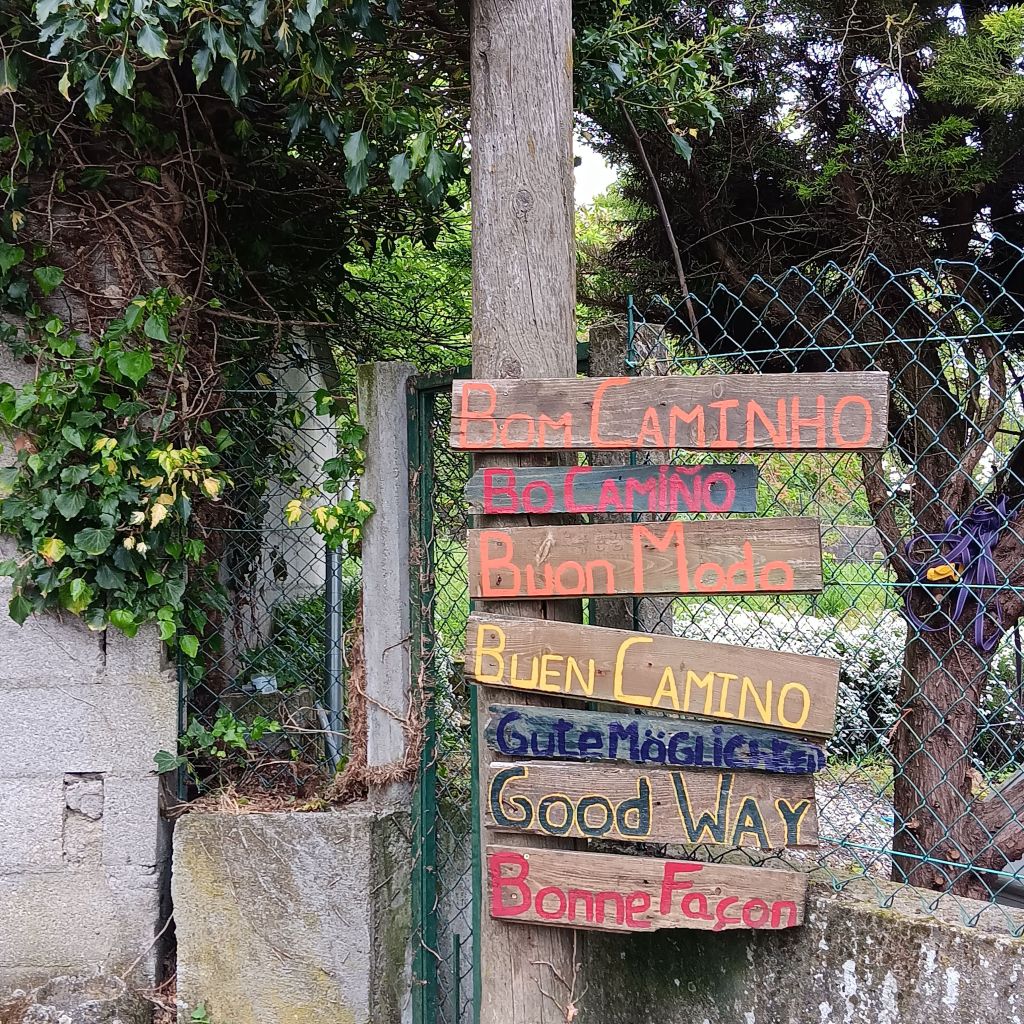 Bom CAMINHO
Bo CAMIÑO
Buon Modo
BUEN CAMINO
Gute MÖGLICHKEIT
Good WAY
Bonne Façon